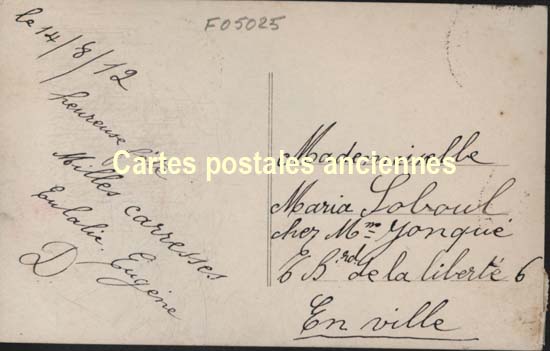 F05025
le 14/8/12
heureuse fête
Milles carresses
Eulalie. Eugène
D
Cartes postales anciennes
Mademoiselle
Maria Loboul
chez Mme Jonqué
6 Brd de la liberté 6
En ville